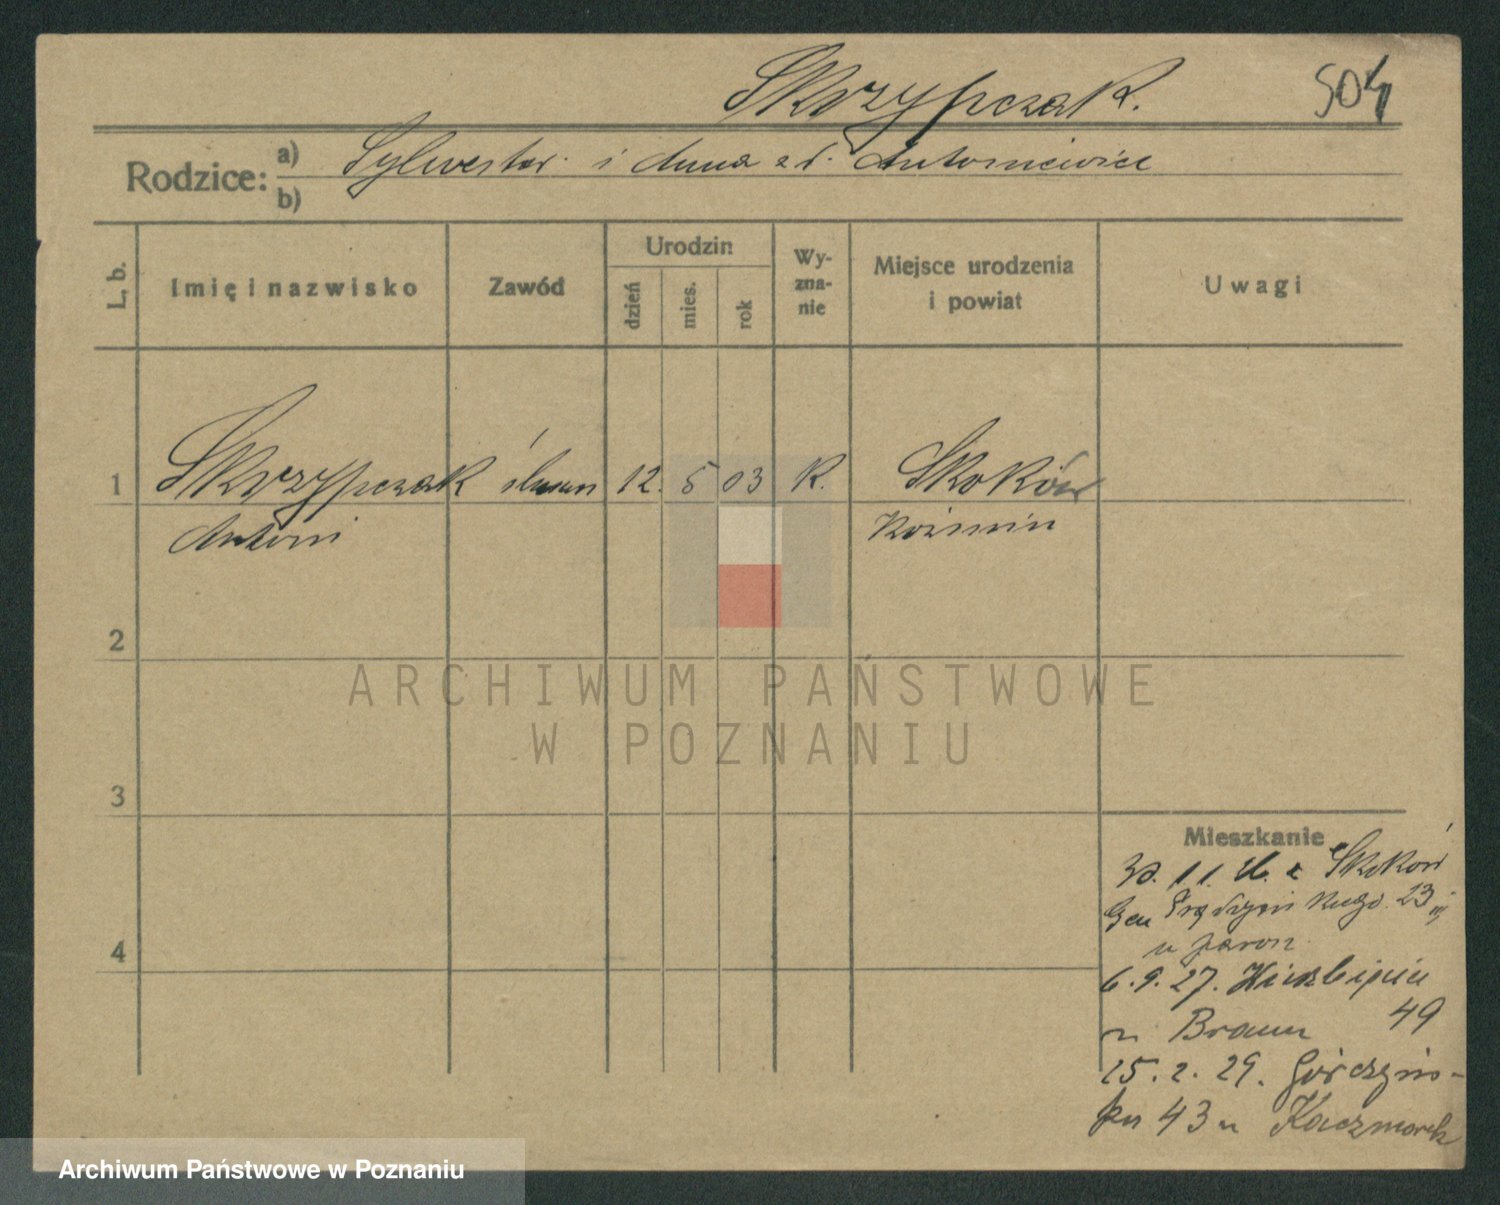 Skrzypczak.
504
Rodzice: a) Sylwester i Anna zd. Antoniewicz
b)
L. b.
Imię i nazwisko
Zawód
Urodzin
dzień
mies.
rok
Wy-
zna-
nie
Miejsce urodzenia
i powiat
Uwagi
1 Skrzypczak 12. 5 03 K. Skoków
Antoni Koźmin
2
3
4
Mieszkanie
Skoków
Gen Prądzyń 23
u
6. 9. 27.
u Braun 49
15. 2. 29. Górczyńs-
ka 43 u Kaczmarek
ARCHIWUM PAŃSTWOWE
W POZNANIU
Archiwum Państwowe w Poznaniu